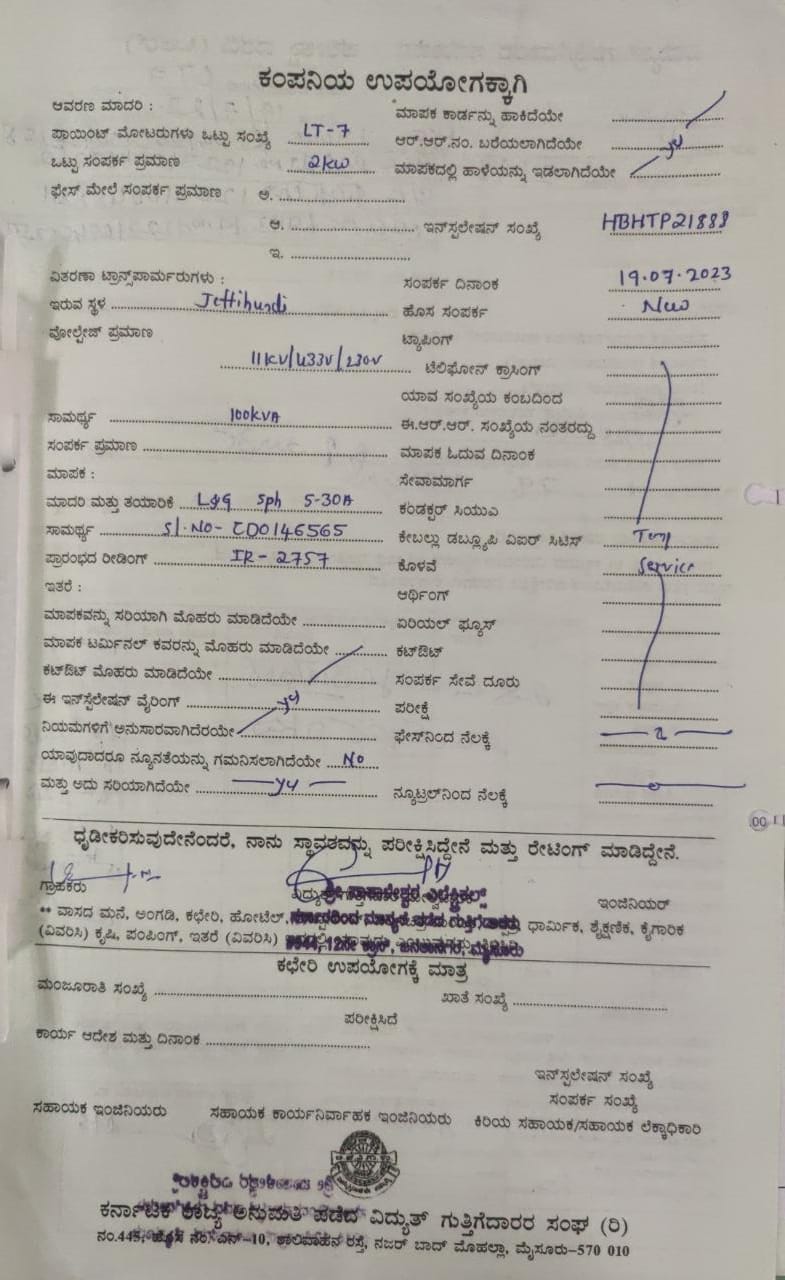 ಕಂಪನಿಯ ಉಪಯೋಗಕ್ಕಾಗಿ
ಆವರಣ ಮಾದರಿ :
ಮಾಪಕ ಕಾರ್ಡನ್ನು ಹಾಕಿದೆಯೇ
ಪಾಯಿಂಟ್ ಮೋಟರುಗಳು ಒಟ್ಟು ಸಂಖ್ಯೆ LT-7
ಆರ್.ಆರ್.ನಂ. ಬರೆಯಲಾಗಿದೆಯೇ
ಒಟ್ಟು ಸಂಪರ್ಕ ಪ್ರಮಾಣ 2kw
ಮಾಪಕದಲ್ಲಿ ಹಾಳೆಯನ್ನು ಇಡಲಾಗಿದೆಯೇ
ಫೇಸ್ ಮೇಲೆ ಸಂಪರ್ಕ ಪ್ರಮಾಣ ಅ.
ಆ.
ಇನ್ಸ್ಪಲೇಷನ್ ಸಂಖ್ಯೆ HBHTP21888
ಇ.
ವಿತರಣಾ ಟ್ರಾನ್ಸ್‌ಪಾರ್ಮರುಗಳು :
ಸಂಪರ್ಕ ದಿನಾಂಕ 19.07.2023
ಇರುವ ಸ್ಥಳ Jettihundi
ಹೊಸ ಸಂಪರ್ಕ New
ವೋಲ್ಟೇಜ್ ಪ್ರಮಾಣ
ಟ್ಯಾಪಿಂಗ್
11KV/433V/230V
ಟೆಲಿಫೋನ್ ಕ್ರಾಸಿಂಗ್
ಯಾವ ಸಂಖ್ಯೆಯ ಕಂಬದಿಂದ
ಸಾಮರ್ಥ್ಯ 100KVA
ಈ.ಆರ್.ಆರ್. ಸಂಖ್ಯೆಯ ನಂತರದ್ದು
ಸಂಪರ್ಕ ಪ್ರಮಾಣ
ಮಾಪಕ ಓದುವ ದಿನಾಂಕ
ಮಾಪಕ :
ಸೇವಾಮಾರ್ಗ
ಮಾದರಿ ಮತ್ತು ತಯಾರಿಕೆ L&G Sph 5-30A
ಕಂಡಕ್ಟರ್ ಸಿಯುಎ
ಸಾಮರ್ಥ್ಯ Sl.No- CD0146565
ಕೇಬಲ್ಲು ಡಬ್ಲ್ಯೂಪಿ ವಿಐರ್ ಸಿಟಿಸ್ Temp
ಪ್ರಾರಂಭದ ರೀಡಿಂಗ್ IR-2757
ಕೊಳವೆ Service
ಇತರೆ :
ಆರ್ಥಿಂಗ್
ಮಾಪಕವನ್ನು ಸರಿಯಾಗಿ ಮೊಹರು ಮಾಡಿದೆಯೇ
ಏರಿಯಲ್ ಫ್ಯೂಸ್
ಮಾಪಕ ಟರ್ಮಿನಲ್ ಕವರನ್ನು ಮೊಹರು ಮಾಡಿದೆಯೇ
ಕಟ್‌ಔಟ್
ಕಟ್‌ಔಟ್ ಮೊಹರು ಮಾಡಿದೆಯೇ
ಸಂಪರ್ಕ ಸೇವೆ ದೂರು
ಈ ಇನ್ಸ್ಪಲೇಷನ್ ವೈರಿಂಗ್
ಪರೀಕ್ಷೆ
ನಿಯಮಗಳಿಗೆ ಅನುಸಾರವಾಗಿದೆರಯೇ
ಫೇಸ್‌ನಿಂದ ನೆಲಕ್ಕೆ
ಯಾವುದಾದರೂ ನ್ಯೂನತೆಯನ್ನು ಗಮನಿಸಲಾಗಿದೆಯೇ No
ಮತ್ತು ಅದು ಸರಿಯಾಗಿದೆಯೇ
ನ್ಯೂಟ್ರಲ್‌ನಿಂದ ನೆಲಕ್ಕೆ
ಧೃಡೀಕರಿಸುವುದೇನೆಂದರೆ, ನಾನು ಸ್ಥಾವರವನ್ನು ಪರೀಕ್ಷಿಸಿದ್ದೇನೆ ಮತ್ತು ರೇಟಿಂಗ್ ಮಾಡಿದ್ದೇನೆ.
ಗ್ರಾಹಕರು
ಇಂಜಿನಿಯರ್
** ವಾಸದ ಮನೆ, ಅಂಗಡಿ, ಕಛೇರಿ, ಹೋಟೆಲ್, ಧಾರ್ಮಿಕ, ಶೈಕ್ಷಣಿಕ, ಕೈಗಾರಿಕ
(ವಿವರಿಸಿ) ಕೃಷಿ, ಪಂಪಿಂಗ್, ಇತರೆ (ವಿವರಿಸಿ)
ಕಛೇರಿ ಉಪಯೋಗಕ್ಕೆ ಮಾತ್ರ
ಮಂಜೂರಾತಿ ಸಂಖ್ಯೆ
ಖಾತೆ ಸಂಖ್ಯೆ
ಪರೀಕ್ಷಿಸಿದೆ
ಕಾರ್ಯ ಆದೇಶ ಮತ್ತು ದಿನಾಂಕ
ಇನ್ಸ್ಪಲೇಷನ್ ಸಂಖ್ಯೆ
ಸಂಪರ್ಕ ಸಂಖ್ಯೆ
ಸಹಾಯಕ ಇಂಜಿನಿಯರು ಸಹಾಯಕ ಕಾರ್ಯನಿರ್ವಾಹಕ ಇಂಜಿನಿಯರು ಕಿರಿಯ ಸಹಾಯಕ/ಸಹಾಯಕ ಲೆಕ್ಕಾಧಿಕಾರಿ
ಕರ್ನಾಟಕ ರಾಜ್ಯ ಅನುಮತಿ ಪಡೆದ ವಿದ್ಯುತ್ ಗುತ್ತಿಗೆದಾರರ ಸಂಘ (ರಿ)
ನಂ.445, ಹೊಸ ನಂ. ಎನ್-10, ಶಾಲಿವಾಹನ ರಸ್ತೆ, ನಜರ್ ಬಾದ್ ಮೊಹಲ್ಲಾ, ಮೈಸೂರು-570 010